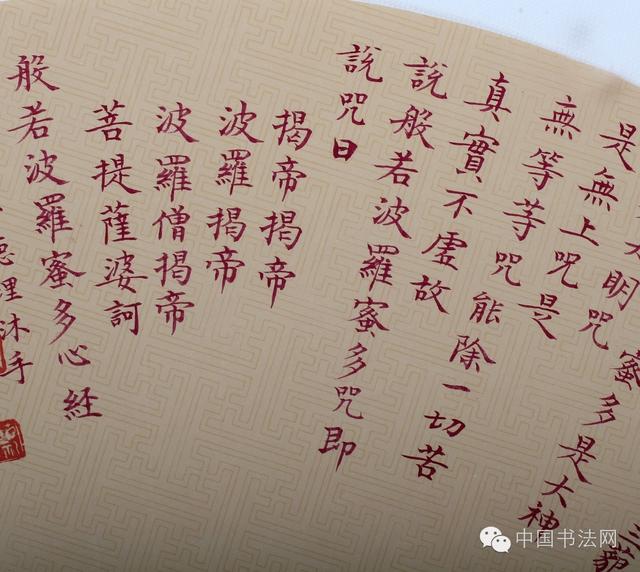 三藐
蜜多是大神
大明咒
是無上咒是
無等等咒能除一切苦
真實不虛故
說般若波羅蜜多咒即
說咒曰
揭帝揭帝
波羅揭帝
波羅僧揭帝
菩提薩婆訶
般若波羅蜜多心經
理沐手
中国书法网